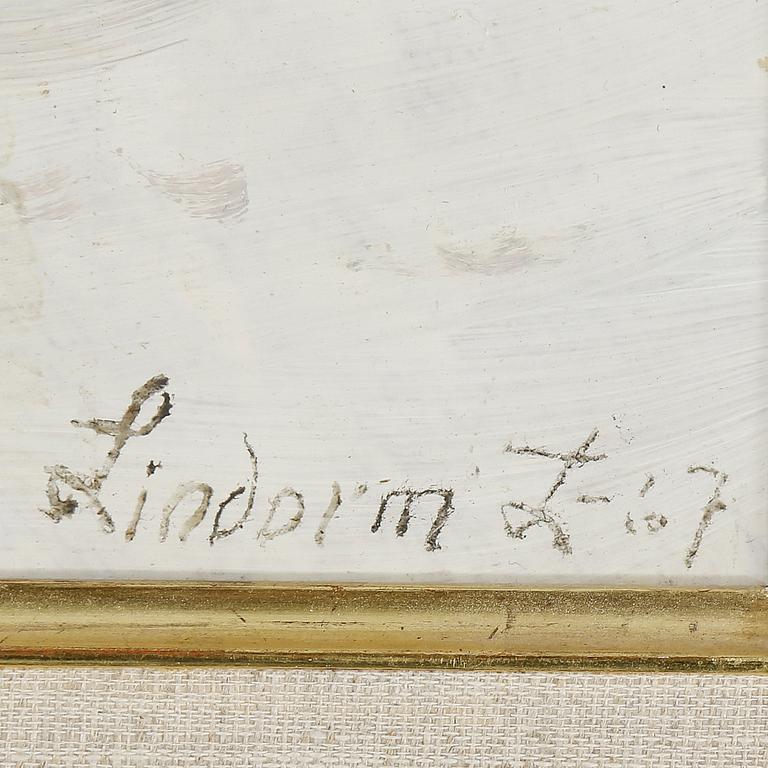 Lindorm L-67